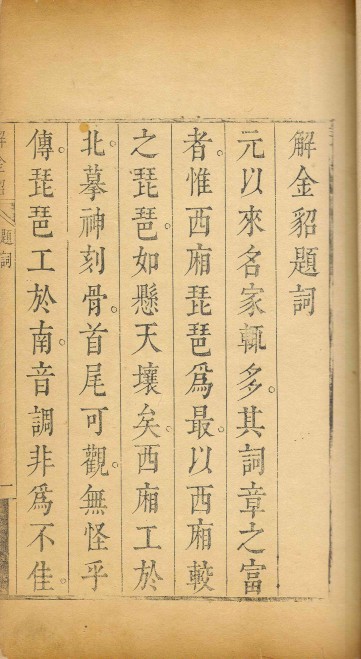 解金貂題詞
元以來名家輒多其詞章之富
者惟西廂琵琶爲最以西廂較
之琵琶如懸天壤矣西廂工於
北摹神刻骨首尾可觀無怪乎
傳琵琶工於南音調非爲不佳
解金貂
題詞
一